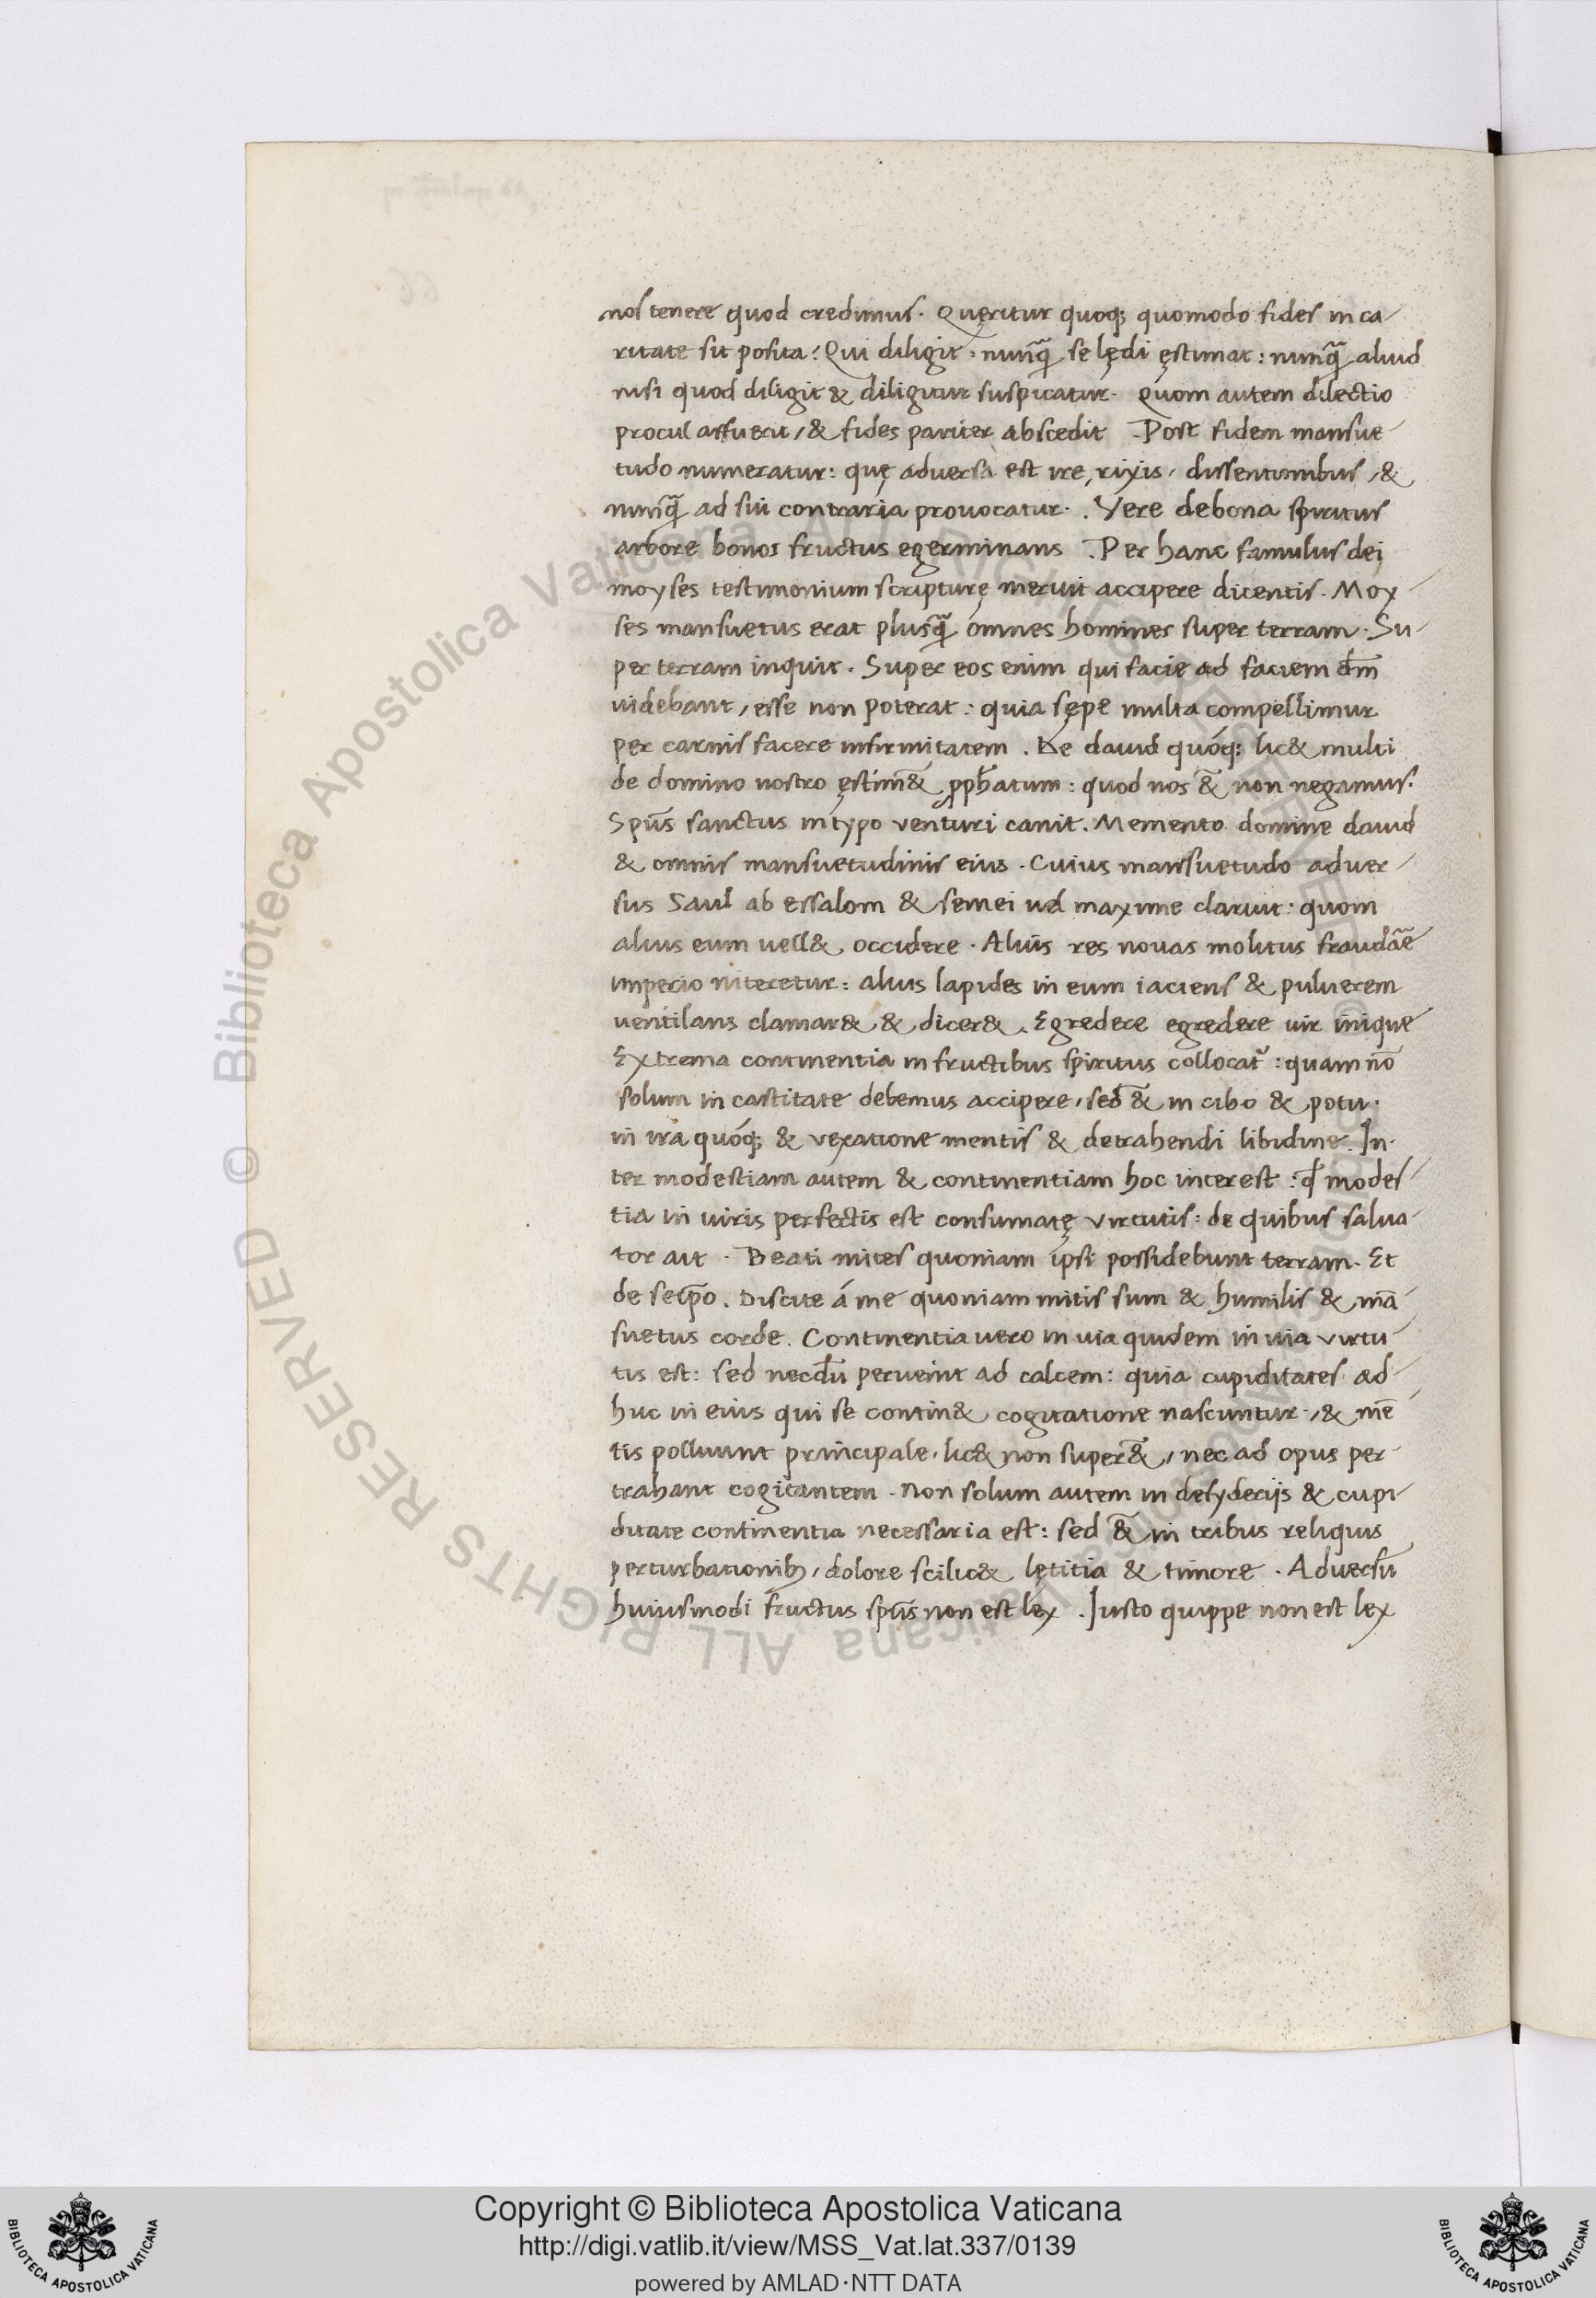 nos tenere quod credimus. Quęritur quoq; quomodo fides in ca-
ritate sit posita? Qui diligit. nunq̃ se lędi ęstimat: nunq̃ aliud
nisi quod diligit & diligitur suspicatur. Quom autem dilectio
procul affuerit, & fides pariter abscedit. Post fidem mansue-
tudo numeratur: quę adversa est ire, rixis, dissentionibus, &
nunq̃ ad sui contraria provocatur. Vere de bona spiritus
arbore bonos fructus egerminans. Per hanc famulus dei
moyses testimonium scripturę meruit accipere dicentis. Moy-
ses mansuetus erat plusq̃ omnes homines super terram. Su-
per terram inquit. Super eos enim qui facie ad faciem dm̃
uidebant, esse non poterat: quia sępe multa compellimur
per carnis facere infirmitatem. De dauid quoq; lic& multi
de domino nostro ęstim& ꝓph̃atum: quod nos &̃ non negamus.
Spũs sanctus in typo venturi canit. Memento domine dauid
& omnis mansuetudinis eius. Cuius mansuetudo adver-
sus Saul abessalom & semei uel maxime claruit: quom
alius eum uell& occidere. Alius res novas molitus fraudãe
imperio niteretur: alius lapides in eum iaciens & puluerem
uentilans clamar& & dicer&. Egredere egredere uir inique
Extrema continentia in fructibus spiritus collocat̃: quam nõ
solum in castitate debemus accipere, sed &̃ in cibo & potu.
in ira quoq; & vexatione mentis & detrahendi libidine. In-
ter modestiam autem & continentiam hoc interest: qđ modes-
tia in uiris perfectis est consumatę virtutis: de quibus salua-
tor ait. Beati mites quoniam ipsi possidebunt terram. Et
de seip̃o. Discite á me quoniam mitis sum & humilis & mã-
suetus corde. Continentia uero in uia quidem in uia virtu-
tis est: sed necdũ peruenit ad calcem: quia cupiditates ad-
huc in eius qui se contin& cogitatione nascuntur, & mẽ-
tis polluunt principale, lic& non super&̃, nec ad opus per-
trahant cogitantem. Non solum autem in desyderijs & cupi-
ditate continentia necessaria est: sed &̃ in tribus reliquis
perturbationib;, dolore scilic& lętitia & timore. Adversũ
huiusmodi fructus spũs non est lex. Justo quippe non est lex
Copyright © Biblioteca Apostolica Vaticana
http://digi.vatlib.it/view/MSS_Vat.lat.337/0139
powered by AMLAD·NTT DATA